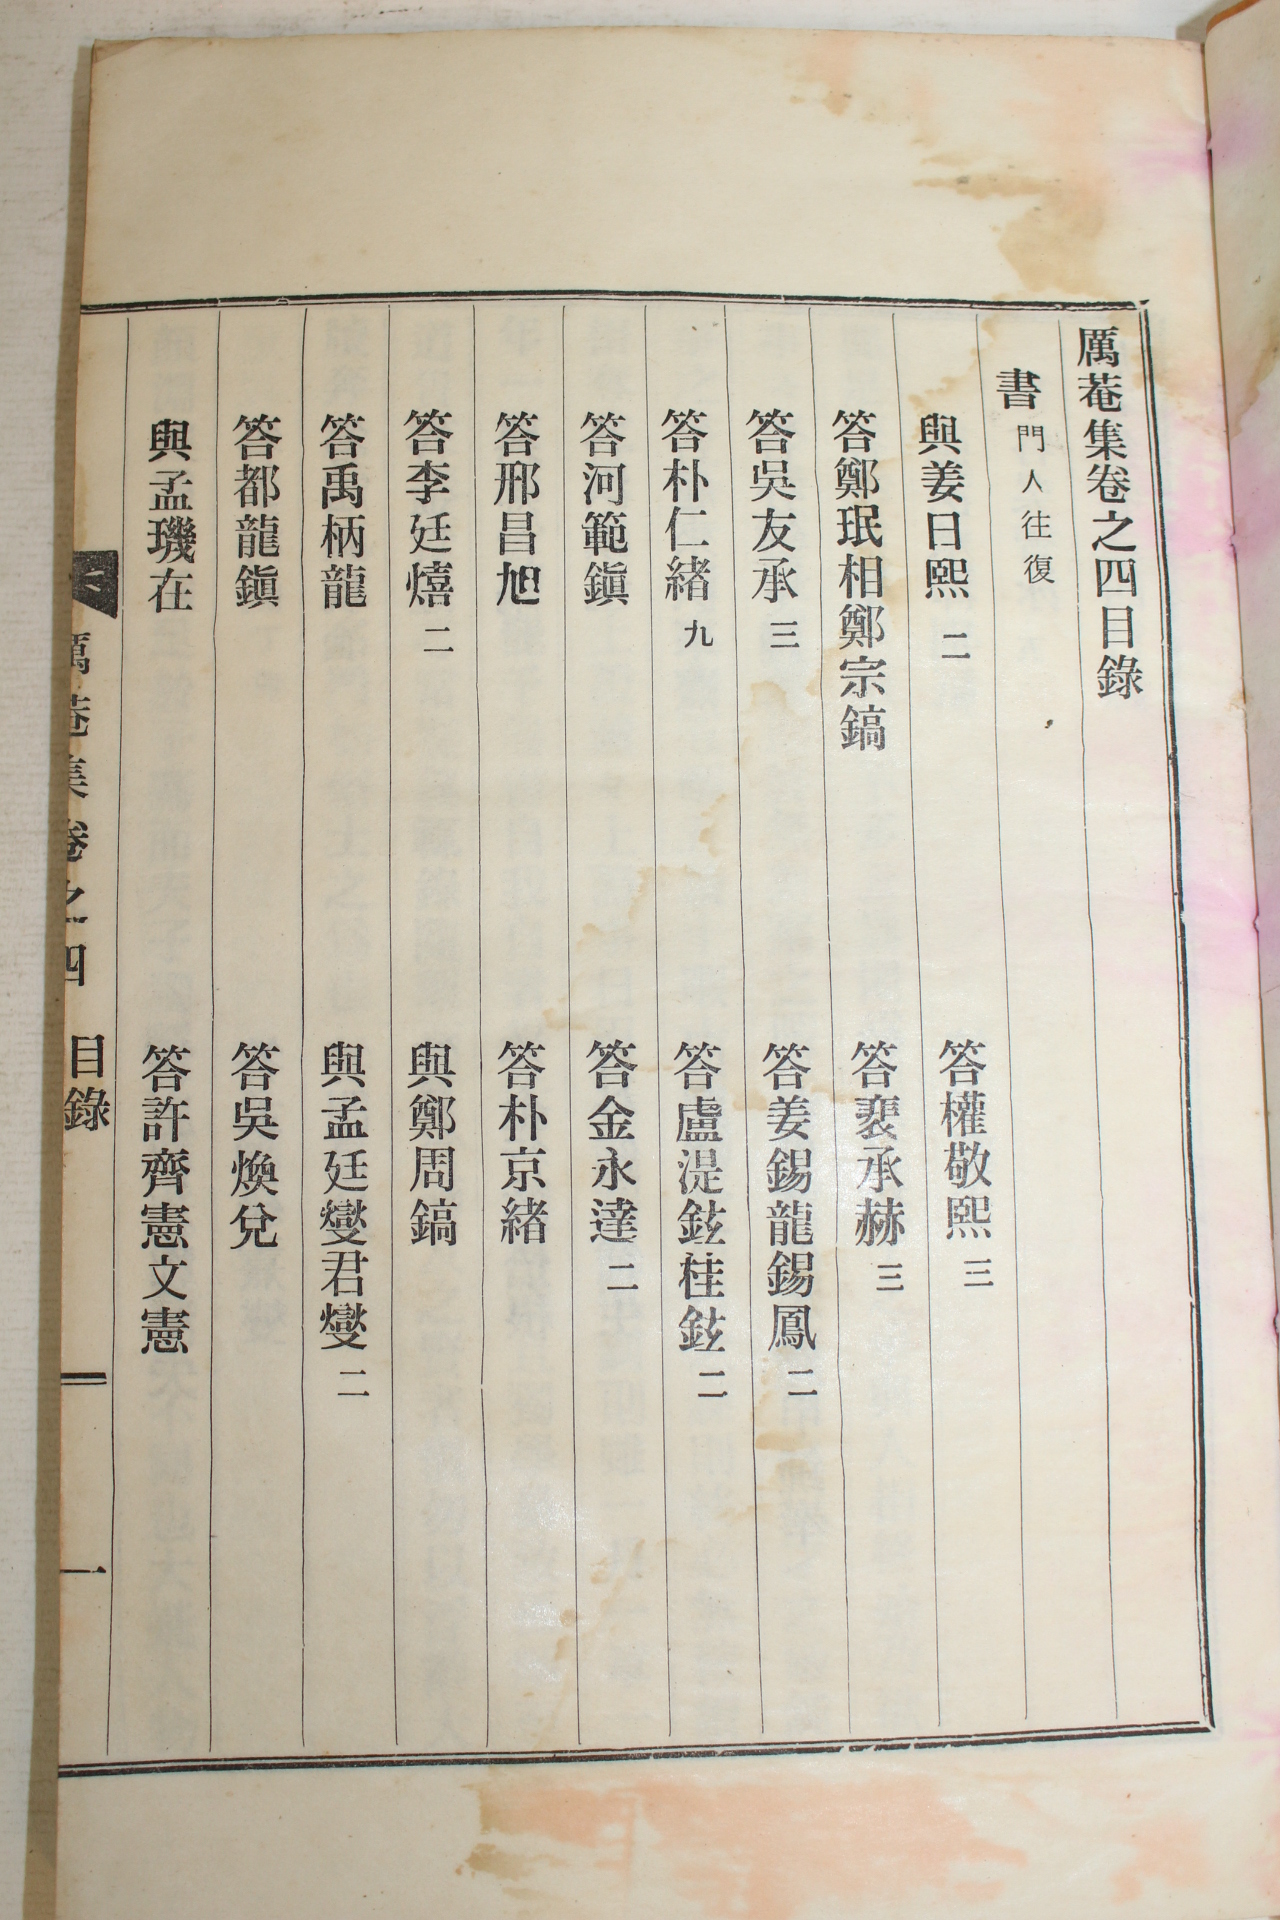 厲菴集卷之四目錄
書 門人往復
與姜日熙 二　答權敬熙 三
答鄭珉相鄭宗鎬　答裴承赫 三
答吳友承 三　答姜錫龍錫鳳 二
答朴仁緖 九　答盧湜鉉桂鉉 二
答河範鎭　答金永達 二
答邢昌旭　答朴京緖
答李廷熺 二　與鄭周鎬
答禹柄龍　與孟廷燮君燮 二
答都龍鎭　答吳煥兌
與孟璣在　答許齊憲文憲
厲菴集卷之四　目錄　一